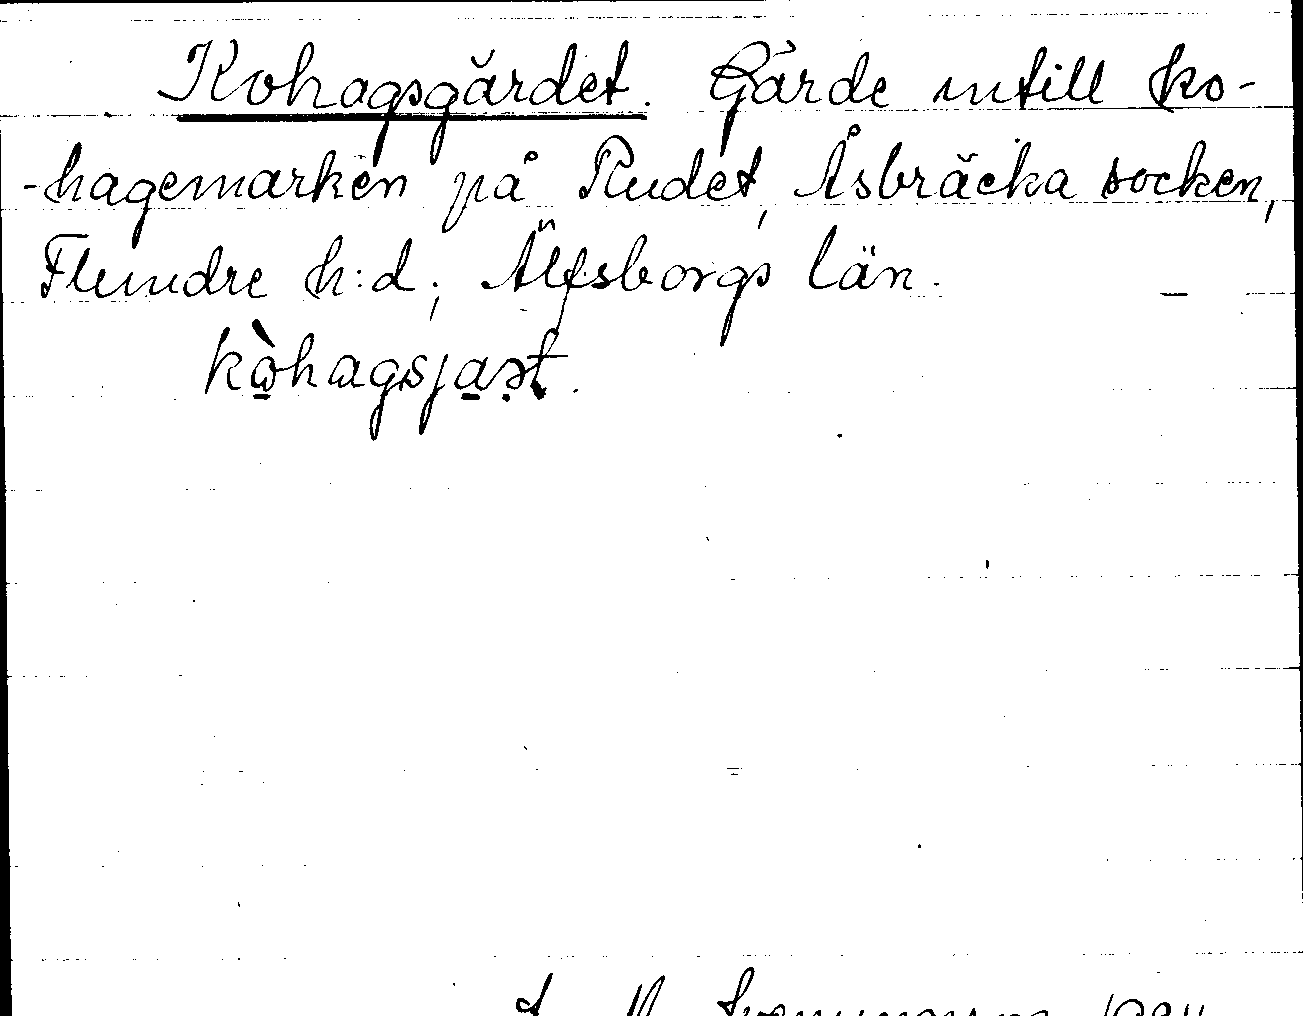 Kohagsgärdet. Gärde intill ko-
-hagemarken på Rudet, Åsbräcka socken,
Flundre h:d, Älfsborgs län.
kòhagsjaṣt.